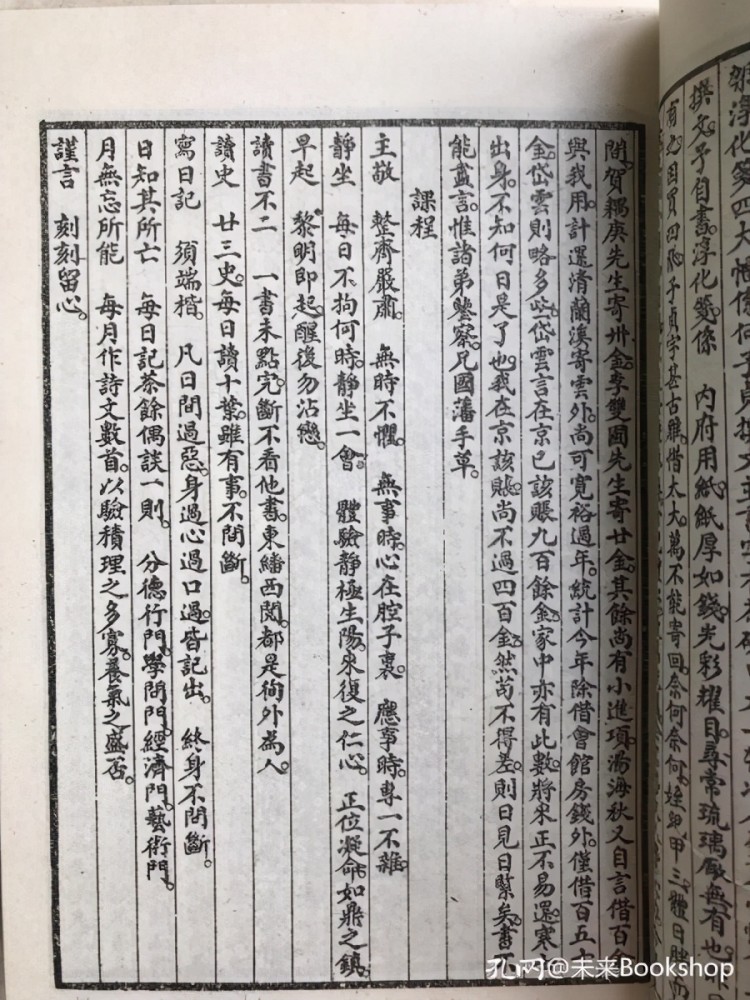 撰文。予自書。淳化箋係 內府用紙。紙厚如錢。光彩耀目。尋常琉璃厰無有也。
有之。因買四張。子貞字甚古雅。惜太大。萬不能寄回。奈何奈何。姪甲三體日胖
間。賀耦庚先生寄卅金。李雙圃先生寄廿金。其餘尚有小進項。湯海秋又自言借百金
與我用。計還清蘭溪寄雲外。尚可寬裕過年。統計今年除借會館房錢外。僅借百五十
金。岱雲則略多些。岱雲言在京已該賬九百餘金。家中亦有此數。將來正不易還。寒士
出身。不知何日是了也。我在京該賬。尚不過四百金。然苟不得差。則日見日緊矣。書不
能盡言。惟諸弟鑒察。兄國藩手草。
課程
主敬 整齊嚴肅。 無時不懼。 無事時。心在腔子裏。 應事時。專一不雜。
靜坐 每日不拘何時。靜坐一會 體驗靜極生陽。來復之仁心。 正位凝命。如鼎之鎮。
早起 黎明即起。醒後勿沾戀。
讀書不二 一書未點完。斷不看他書。東繙西閱。都是徇外為人。
讀史 廿三史。每日讀十葉。雖有事。不間斷。
寫日記 須端楷。 凡日間過惡。身過心過口過。皆記出。 終身不間斷。
日知其所亡 每日記茶餘偶談一則。 分德行門。學問門。經濟門。藝術門。
月無忘所能 每月作詩文數首。以驗積理之多寡。養氣之盛否。
謹言 刻刻留心。
孔网@未来Bookshop